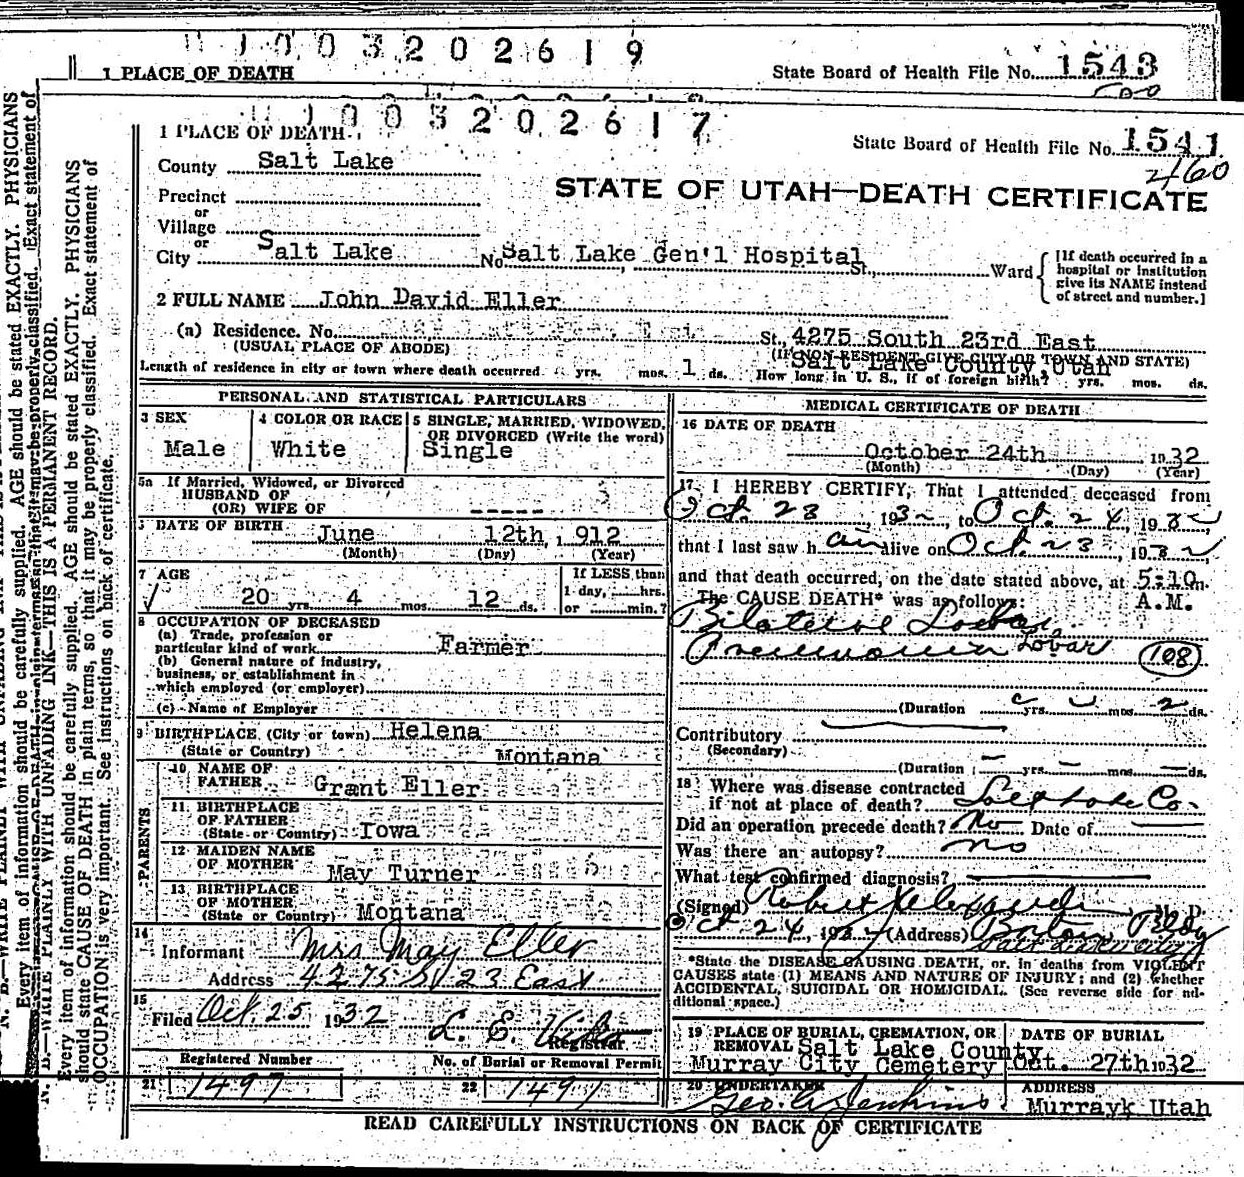 10032026 19
1 PLACE OF DEATH
State Board of Health File No. 1543
1003202617
1 PLACE OF DEATH
State Board of Health File No. 1541
460
County Salt Lake
STATE OF UTAH—DEATH CERTIFICATE
Precinct
or
Village
or
City Salt Lake No. Salt Lake Gen'l Hospital St., Ward
[If death occurred in a
hospital or institution
give its NAME instead
of street and number.]
2 FULL NAME John David Eller
(a) Residence. No. St., 4275 South 23rd East
(USUAL PLACE OF ABODE) (IF NON-RESIDENT GIVE CITY OR TOWN AND STATE)
Salt Lake County, Utah
Length of residence in city or town where death occurred yrs. mos. 1 ds. How long in U. S., if of foreign birth? yrs. mos. ds.
PERSONAL AND STATISTICAL PARTICULARS
3 SEX
Male
4 COLOR OR RACE
White
5 SINGLE, MARRIED, WIDOWED,
OR DIVORCED (Write the word)
Single
5a If Married, Widowed, or Divorced
HUSBAND OF
(OR) WIFE OF -----
DATE OF BIRTH June 12th, 1912
(Month) (Day) (Year)
7 AGE
20 yrs. 4 mos. 12 ds.
If LESS than
1 day, hrs.
or min.?
8 OCCUPATION OF DECEASED
(a) Trade, profession or
particular kind of work Farmer
(b) General nature of industry,
business, or establishment in
which employed (or employer)
(c) Name of Employer
9 BIRTHPLACE (City or town) Helena
(State or Country) Montana
PARENTS
10 NAME OF
FATHER Grant Eller
11 BIRTHPLACE
OF FATHER
(State or Country) Iowa
12 MAIDEN NAME
OF MOTHER May Turner
13 BIRTHPLACE
OF MOTHER
(State or Country) Montana
14
Informant Mrs May Eller
Address 4275 S 23 East
15
Filed Oct. 25 1932 L. E.
Registrar
Registered Number No. of Burial or Removal Permit
21 1497 22 1497
MEDICAL CERTIFICATE OF DEATH
16 DATE OF DEATH
October 24th 1932
(Month) (Day) (Year)
17 I HEREBY CERTIFY, That I attended deceased from
Oct. 23 1932, to Oct. 24, 1932
that I last saw h alive on Oct. 23, 1932
and that death occurred, on the date stated above, at 5:10 m.
A.M.
The CAUSE DEATH* was as follows:
Lobar
Pneumonia Lobar 108
(Duration yrs. mos. 2 ds.
Contributory
(Secondary)
(Duration yrs. mos. ds.
18 Where was disease contracted
if not at place of death? Salt Lake Co.
Did an operation precede death? No Date of
Was there an autopsy? no
What test confirmed diagnosis?
(Signed) Robert Alexander, M. D.
Oct 24, 193 (Address) Boston Bldg
Salt Lake City
*State the DISEASE CAUSING DEATH, or, in deaths from VIOLENT
CAUSES state (1) MEANS AND NATURE OF INJURY; and (2) whether
ACCIDENTAL, SUICIDAL OR HOMICIDAL. (See reverse side for ad-
ditional space.)
19 PLACE OF BURIAL, CREMATION, OR
REMOVAL Salt Lake County
Murray City Cemetery
DATE OF BURIAL
Oct. 27th 1932
20 UNDERTAKER
Geo. A. Jenkins
ADDRESS
Murrayk Utah
READ CAREFULLY INSTRUCTIONS ON BACK OF CERTIFICATE
N. B.—WRITE PLAINLY WITH UNFADING INK—THIS IS A PERMANENT RECORD.
Every item of information should be carefully supplied. AGE should be stated EXACTLY. PHYSICIANS
should state CAUSE OF DEATH in plain terms, so that it may be properly classified. Exact statement of
OCCUPATION is very important. See instructions on back of certificate.
Every item of information should be carefully supplied. AGE should be stated EXACTLY. PHYSICIANS